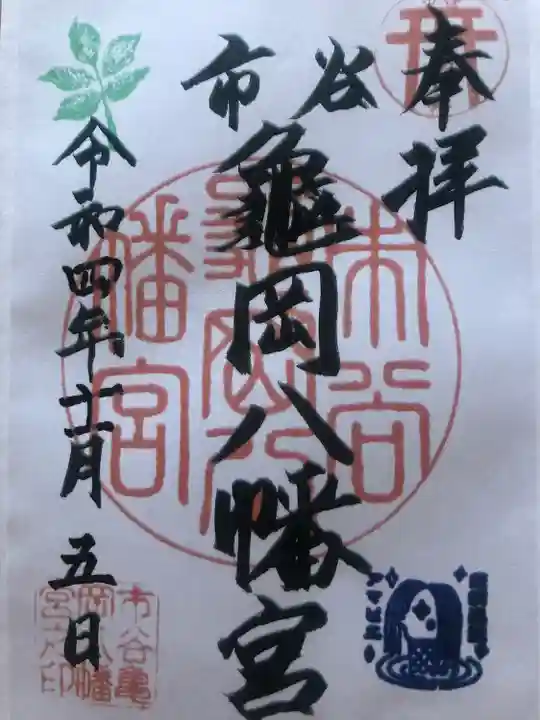 奉拝
市谷
亀岡八幡宮
令和四年十一月五日
市谷
亀岡八
幡宮
市谷亀
岡八幡
宮之印